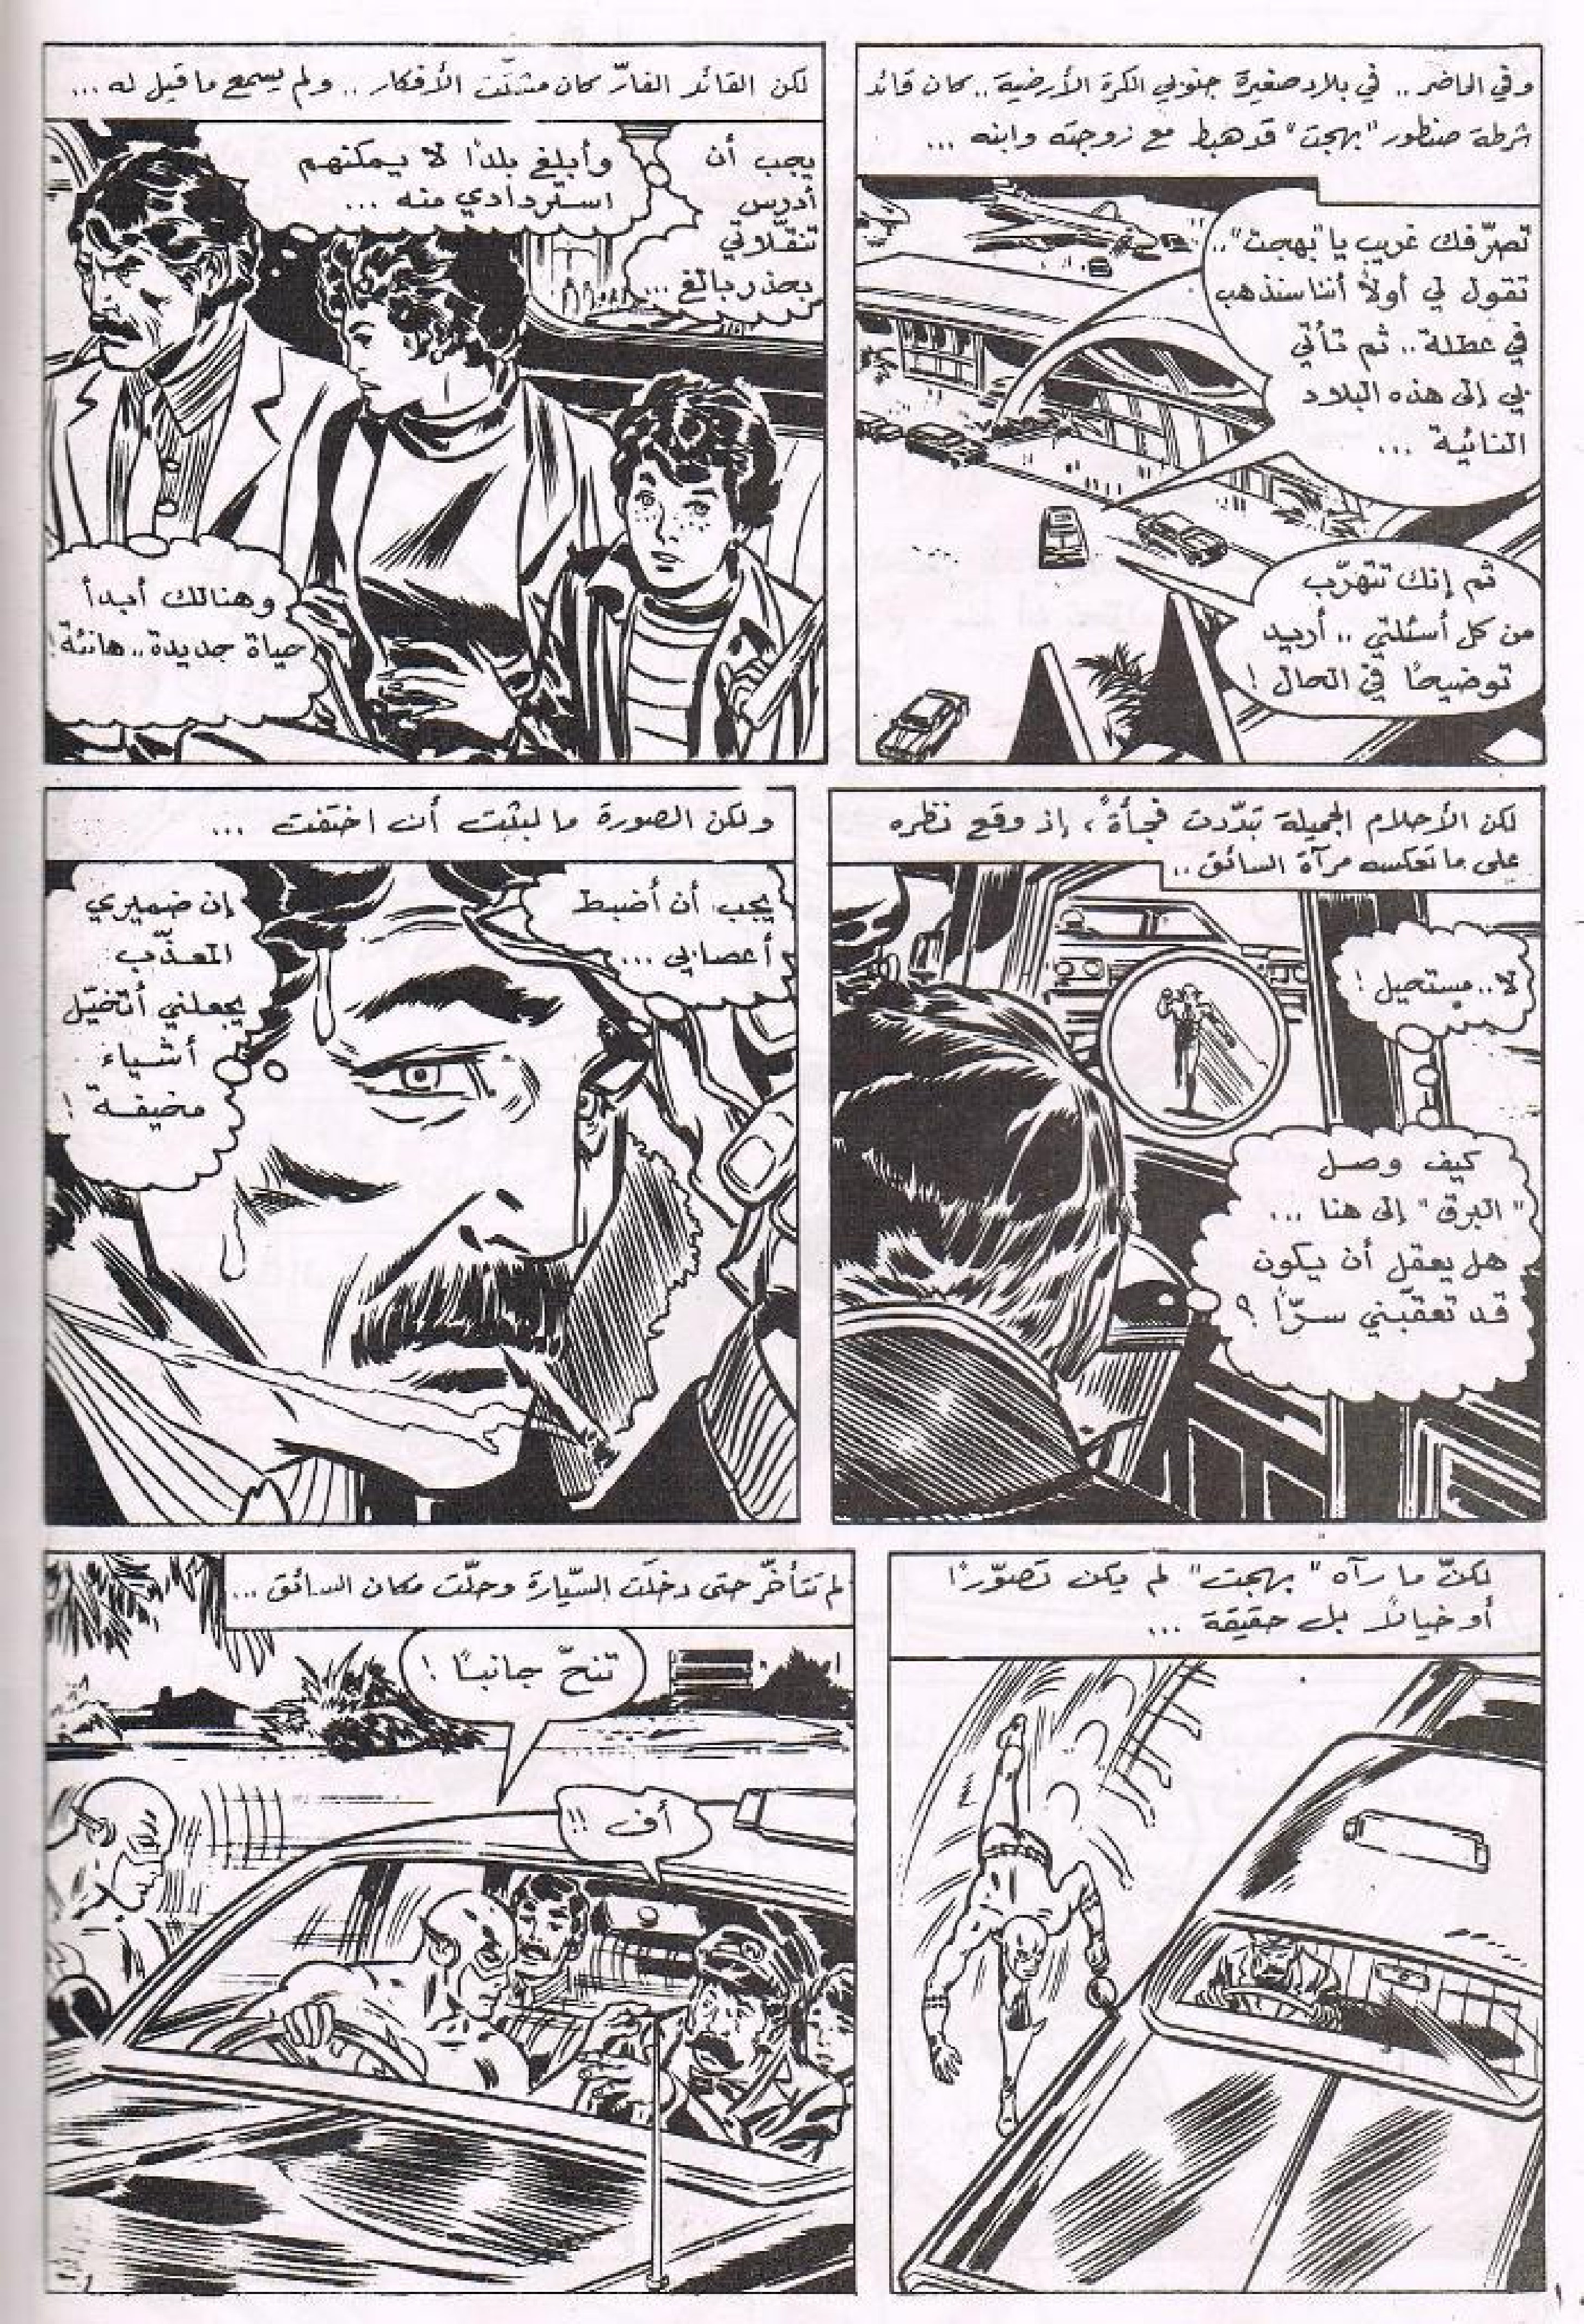 وفي الحاضر .. في بلاد صغيرة جنوبي الكرة الأرضية .. كان قائد
شرطة صنطور "بهجت" قد هبط مع زوجته وابنه ...
تصرّفك غريب يا "بهجت" ..
تقول لي أولاً أننا سنذهب
في عطلة .. ثم تأتي
بي إلى هذه البلاد
النائية ...
ثم إنك تتهرّب
من كل أسئلتي .. أريد
توضيحًا في الحال !
لكن القائد الفارّ كان مشتّت الأفكار .. ولم يسمع ما قيل له ...
يجب أن
أدرس
تنقّلاتي
بحذر بالغ ...
وأبلغ بلدًا لا يمكنهم
استردادي منه ...
وهنالك أبدأ
حياة جديدة .. هانئة !
لكن الأحلام الجميلة تبدّدت فجأةً ، إذ وقع نظره
على ما تعكسه مرآة السائق ..
لا .. مستحيل !
كيف وصل
"البرق" إلى هنا ...
هل يعقل أن يكون
قد تعقّبني سرًّا ؟
ولكن الصورة ما لبثت أن اختفت ...
يجب أن أضبط
أعصابي ...
إن ضميري
المعذّب
يجعلني أتخيّل
أشياء
مخيفة !
لكنّ ما رآه "بهجت" لم يكن تصوّرًا
أو خيالاً بل حقيقة ...
لم تتأخّر حتى دخلت السيّارة وحلّت مكان السائق ...
تنحّ جانبًا !
أف !!